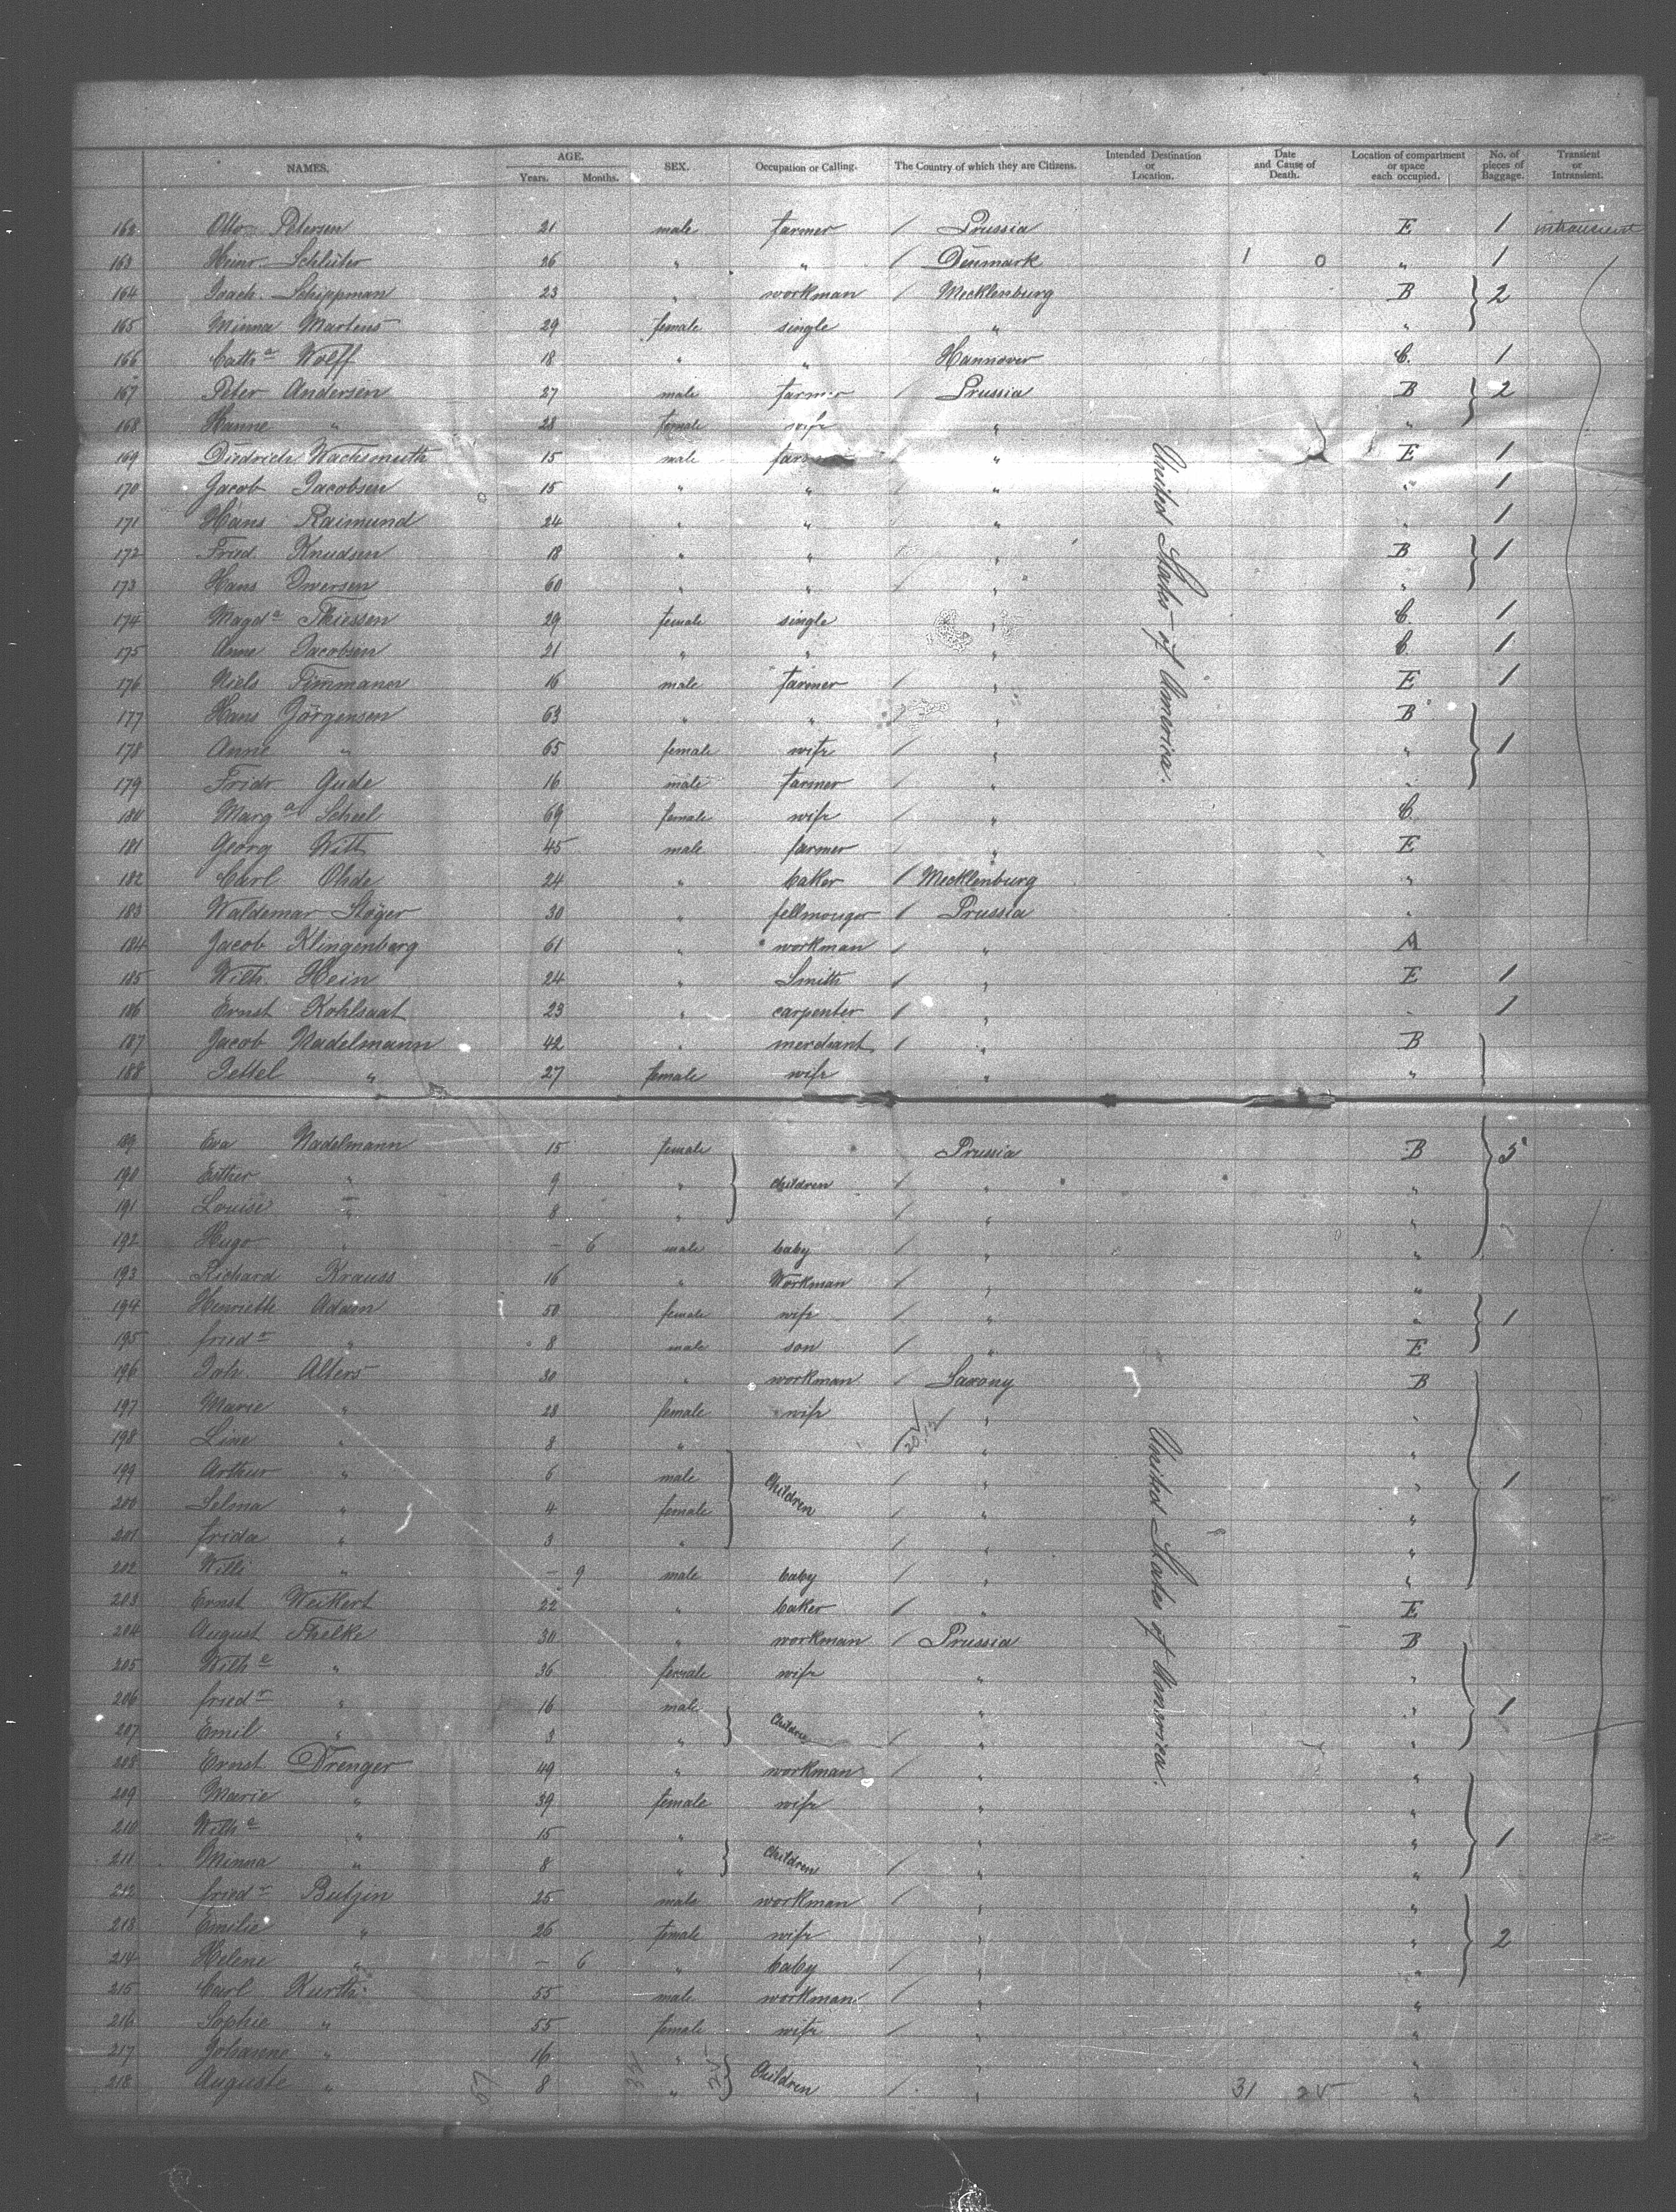 NAMES. AGE. Years. Months. SEX. Occupation or Calling. The Country of which they are Citizens. Intended Destination or Location. Date and Cause of Death. Location of compartment or space each occupied. No. of pieces of Baggage. Transient or Intransient.
162 Otto Petersen 21 male farmer / Prussia E 1 intransient
163 Heinr. Schlüter 26 " " / Denmark 1 0 " 1
164 Joach. Schippman 23 " workman / Mecklenburg B 2
165 Minna Martens 29 female single " "
166 Catha Wolff 18 " " Hannover C. 1
167 Peter Andersen 27 male farmer / Prussia B 2
168 Hanne " 28 female wife " "
169 Diedrich Wachsmuth 15 male / " E 1
170 Jacob Jacobsen 15 " " / " " 1
171 Hans Raimund 24 " " " " 1
172 Fried. Knudsen 18 " " / " B 1
173 Hans Iversen 60 " " / " "
174 Magda Thiessen 29 female single " C. 1
175 Anne Jacobsen 21 " " " C 1
176 Niels 16 male farmer / " E 1
177 Hans Jörgensen 63 " " / " B
178 Anne " 65 female wife / " " 1
179 Friedr Gude 16 male farmer / " "
180 Marga Scheel 69 female wife / " C.
181 Georg Witt 45 male farmer / " E
182 Carl Ohde 24 " baker / Mecklenburg "
183 Waldemar Stöger 30 " fellmonger / Prussia "
184 Jacob Klingenberg 61 " workman / " A
185 Wilh. Hein 24 " Smith / " E 1
186 Ernst Kohlsaat 23 " carpenter / " " 1
187 Jacob Nadelmann 42 " merchant / " B
188 Jettel " 27 female wife " "
United States of America.
189 Eva Nadelmann 15 female Prussia B 5
190 Esther " 9 " children / " "
191 Louise " 8 " / " "
192 Hugo " — 6 male baby / " "
193 Richard Krauss 16 " Workman / " "
194 Henriette Adam 50 female wife / " " 1
195 friedr " 8 male son / " E
196 Joh. Alters 30 " workman / Saxony B
197 Marie " 28 female wife " "
198 Line " 8 " / " "
199 Arthur " 6 male Children / " " 1
200 Selma " 4 female / " "
201 frida " 3 " / " "
202 Willi " — 9 male baby / " "
203 Ernst Weikert 22 " baker / " E
204 August Thelke 30 " workman / Prussia B
205 Wilhe " 36 female wife " "
206 friedr " 16 male " " 1
207 Emil " 3 " / " "
208 Ernst Drenger 49 " workman / " "
209 Marie " 39 female wife " "
210 Wilhe " 15 " " " 1
211 Minna " 8 " Children / " "
212 friedr Butzin 25 male workman / " "
213 Emilie " 26 female wife " " 2
214 Helene " — 6 " baby / " "
215 Carl Kurth 55 male workman / " "
216 Sophie " 55 female wife / " "
217 Johanne " 16 " " "
218 Auguste " 8 " Children / " 31 25 "
United States of America.